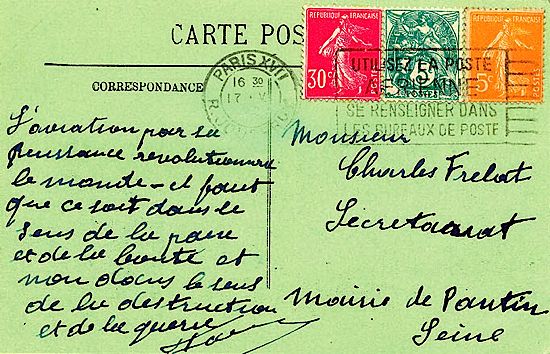 CARTE POS
CORRESPONDANCE
REPUBLIQUE FRANÇAISE
30c
POSTES
5
POSTES
REPUBLIQUE FRANÇAISE
5c
POSTES
PARIS XVII
16 30
UTILISEZ LA POSTE
SE RENSEIGNER DANS
LES BUREAUX DE POSTE
L'aviation par sa
Puissance revolutionne
le monde – il faut
que ce soit dans le
sens de la paix
et de la bonté et
non dans le sens
de la destruction
et de la guerre
Monsieur
Charles Frelat
Secretariat
Mairie de Pantin
Seine